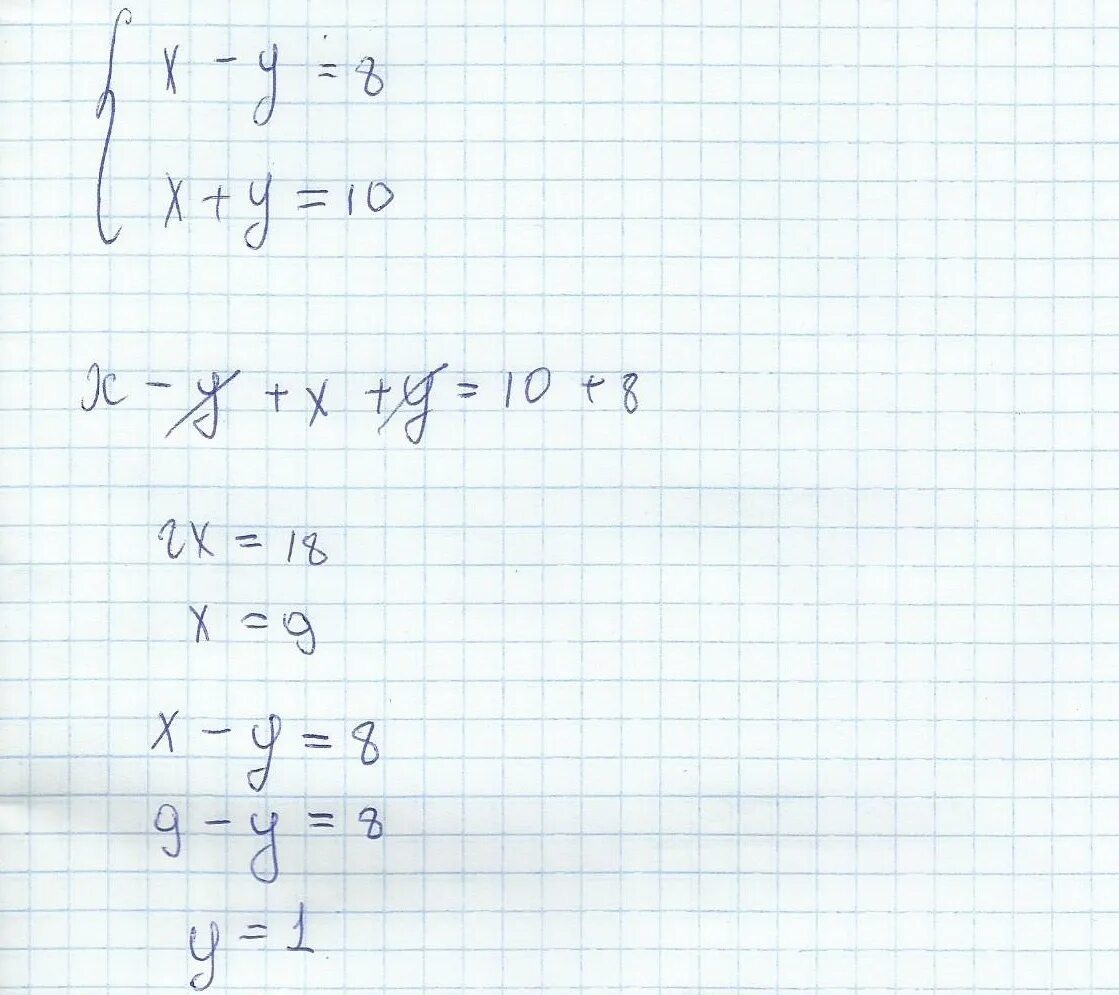 x - y = 8
x + y = 10
x - y + x + y = 10 + 8
2x = 18
x = 9
x - y = 8
9 - y = 8
y = 1